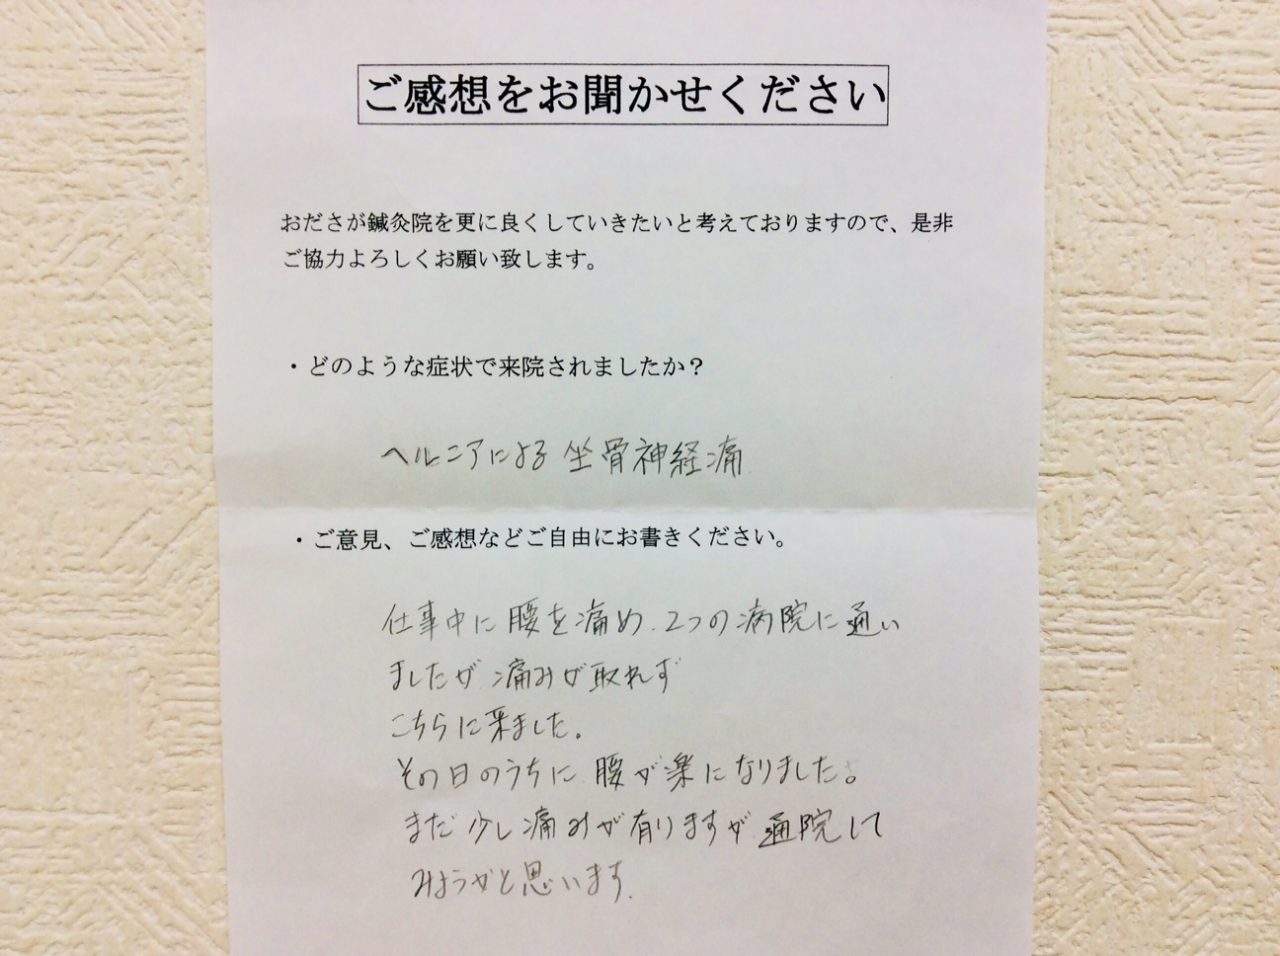 ご感想をお聞かせください
おださが鍼灸院を更に良くしていきたいと考えておりますので、是非
ご協力よろしくお願い致します。
・どのような症状で来院されましたか？
ヘルニアによる坐骨神経痛
・ご意見、ご感想などご自由にお書きください。
仕事中に腰を痛め、2つの病院に通い
ましたが痛みが取れず
こちらに来ました。
その日のうちに腰が楽になりました。
まだ少し痛みが有りますが通院して
みようかと思います。